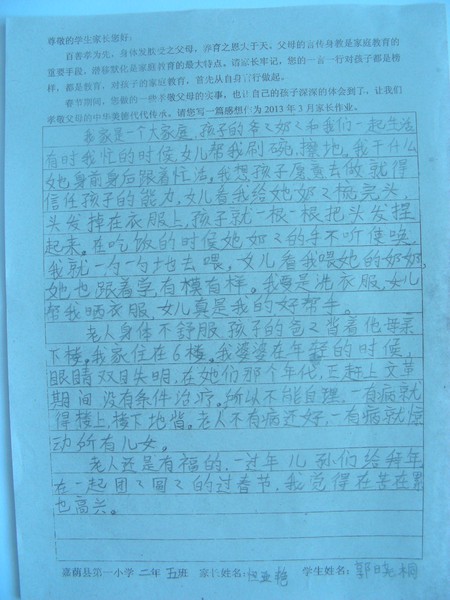 尊敬的学生家长您好:
百善孝为先,身体发肤受之父母,养育之恩大于天,父母的言传身教是家庭教育的
重要手段,潜移默化是家庭教育的最大特点。请家长牢记,您的一言一行对孩子都是榜
样,都是教育,对孩子的家庭教育,首先从自身言行做起。
春节期间,您做的一些孝敬父母的实事,也让自己的孩子深深的体会到了,让我们
孝敬父母的中华美德代代传承。请您写一篇感想作为2013年3月家长作业。
我家是一个大家庭,孩子的爷々奶々和我们一起生活
有时我忙的时候,女儿帮我刷碗,擦地。我干什么
她身前身后跟着忙活,我想孩子愿意去做就得
信任孩子的能力,女儿看我给她奶々梳完头,
头发掉在衣服上,孩子就一根一根把头发捏
起来。在吃饭的时候她奶々的手不听使唤,
我就一勺一勺地去喂,女儿看我喂她的奶奶,
她也跟着学有模有样。我要是洗衣服,女儿
帮我晒衣服,女儿真是我的好帮手。
老人身体不舒服,孩子的爸々背着他母亲
下楼。我家住在6楼。我婆婆在年轻的时候,
眼睛双目失明,在她们那个年代,正赶上文革
期间没有条件治疗。所以不能自理,一有病就
得楼上,楼下地背。老人不有病还好,一有病就惊
动所有儿女。
老人还是有福的,一过年儿孙们给拜年
在一起团々圆々的过春节,我觉得在苦在累
也高兴。
嘉荫县第一小学 二年 五班 家长姓名: 学生姓名:郭日桐